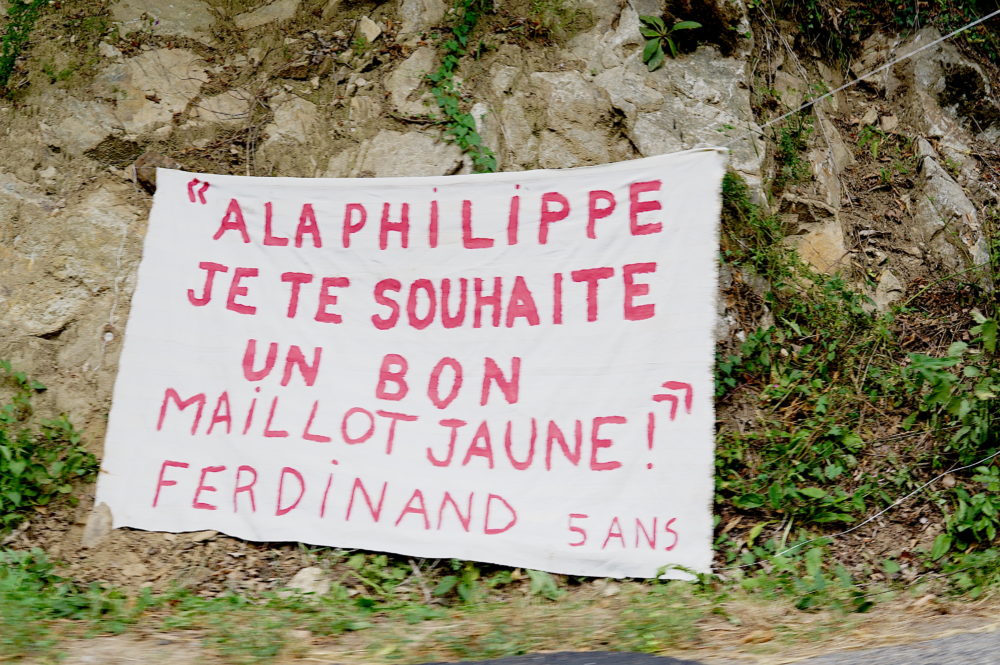 « ALAPHiLiPPE
JE TE SOUHAiTE
UN BON
MAiLLOT JAUNE ! »
FERDiNAND 5 ANS